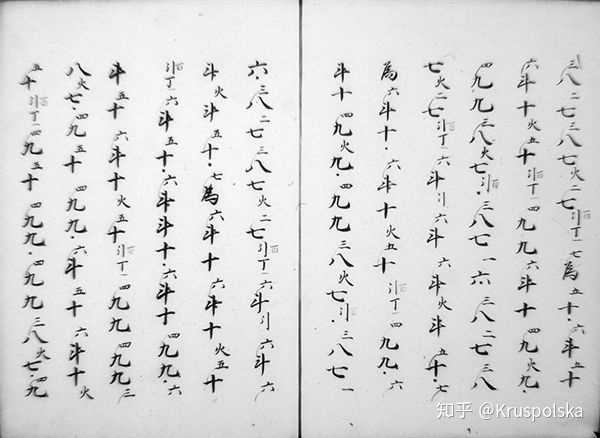 三八二七三八七火二七引丁一七為五十・六斗五十
六斗十火五十引丁一四九九六斗十四九火九・
四九九三八火七・引・三八七一六三八二七三八
七火二七引丁一六斗引六斗六斗火斗五十・七
為六斗十・六斗十火五十引丁一四九九・六
斗十四九火九・四九九三八火七・引・三八七一
六・三八二七三八七火二七引丁一六斗引六斗六
斗火斗五十・七為六斗十六斗十火五十
引丁一六斗五十・六斗斗十・六斗十四九九・六
斗五十六斗十火五十引丁一四九九四九九三
八火七・四九五十四九九・六斗五十六斗十火
五十引丁一四九五十四九九・四九九三八火七・四九
知乎 @Kruspolska